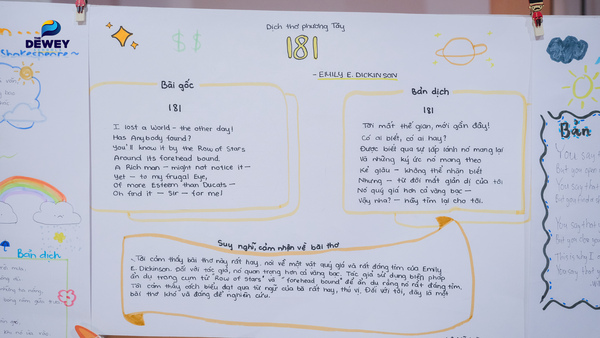 DEWEY
Shakespeare~
Dịch thơ phương Tây
181
- EMILY E. DICKINSON
Bài gốc
181
I lost a World - the other day!
Has Anybody found?
You'll know it by the Row of Stars
Around its forehead bound.
A Rich man - might not notice it -
Yet - to my frugal Eye,
Of more Esteem than Ducats -
Oh find it - Sir - for me!
Bản dịch
181
Tôi mất thế gian, mới gần đây!
Có ai biết, có ai hay?
Được biết qua sự lấp lánh nó mang lại
Và những ký ức nó mang theo
Kẻ giàu - không thể nhận biết
Nhưng - từ đôi mắt giản dị của tôi
Nó quý giá hơn cả vàng bạc -
Vậy nha? - hãy tìm lại cho tôi.
Suy nghĩ, cảm nhận về bài thơ
- Tôi cảm thấy bài thơ này rất hay, nói về một vật quý giá và rất đáng tìm của Emily
E. Dickinson. Đối với tác giả, nó quan trọng hơn cả vàng bạc. Tác giả sử dụng biện pháp
ẩn dụ trong cụm từ "Row of stars" và "forehead bound" để ẩn dụ rằng nó rất đáng tìm.
Tôi cảm thấy cách biểu đạt qua từ ngữ của bà rất hay, thú vị. Đối với tôi, đây là một
bài thơ khó và đáng để nghiên cứu.
Bản dịch
Bản
You say that
But you
You say that
You say that
This is why I
You say that